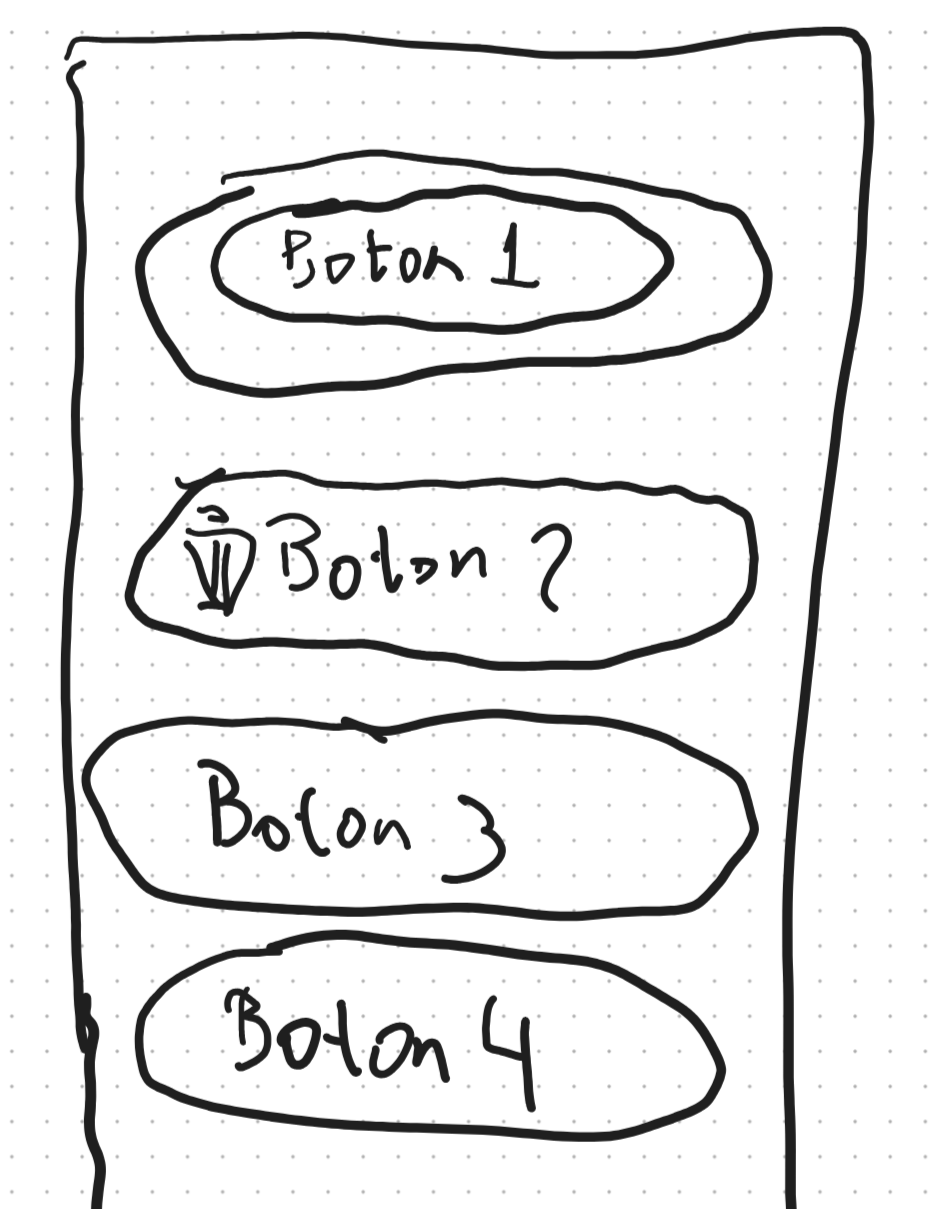 Boton 1
Boton 2
Boton 3
Boton 4